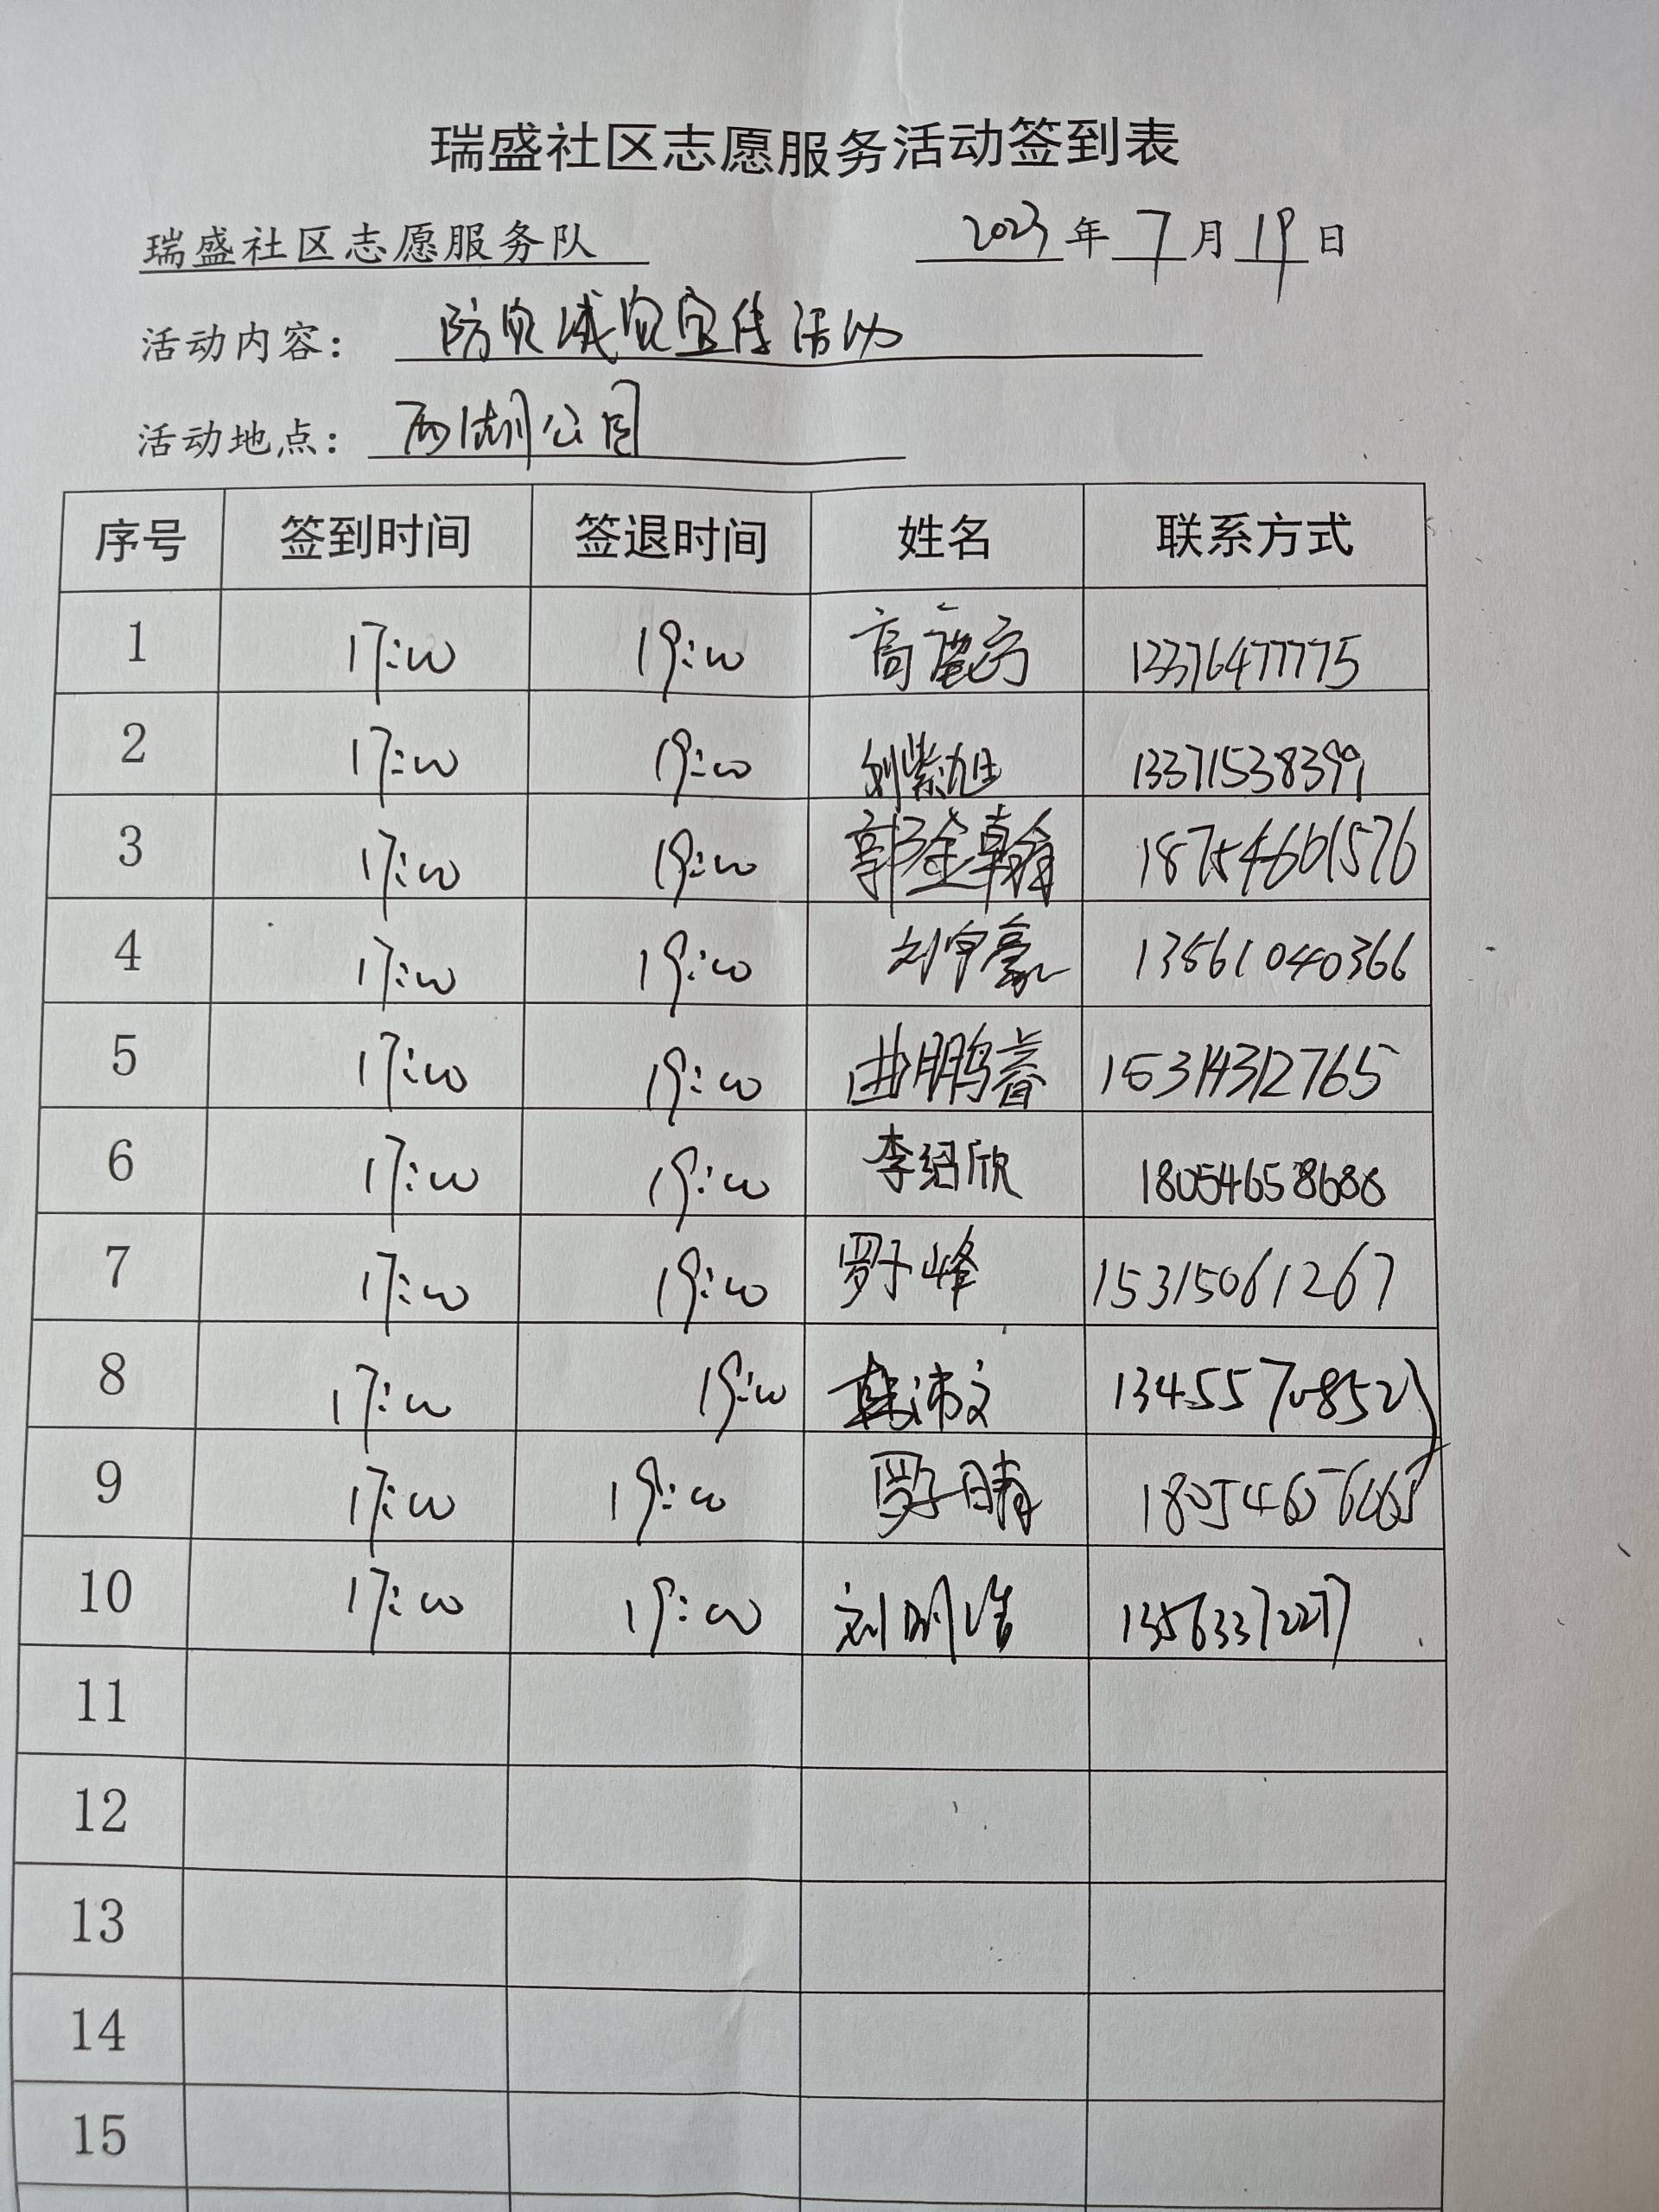 瑞盛社区志愿服务活动签到表
瑞盛社区志愿服务队 2023年7月19日
活动内容： 防灾减灾宣传活动
活动地点： 西湖公园
序号 签到时间 签退时间 姓名 联系方式
1 17:00 19:00 13376477775
2 17:00 19:00 刘紫旭 13371538399
3 17:00 19:00 郭金翰 18754661576
4 17:00 19:00 刘宇豪 13561040366
5 17:00 19:00 曲鹏睿 15314312765
6 17:00 19:00 李绍欣 18054658688
7 17:00 19:00 罗子峰 15315061267
8 17:00 19:00 韩沛文
9 17:00 19:00 罗子晴
10 17:00 19:00 刘明浩
11
12
13
14
15